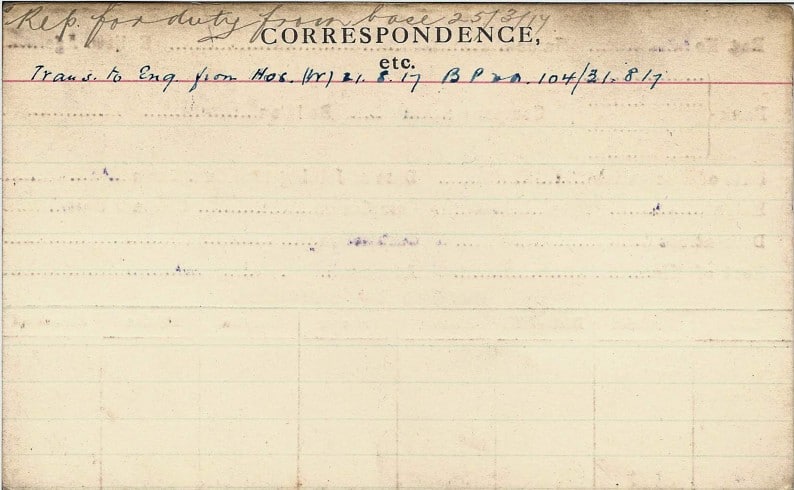 Rep. for duty from base 25/3/17
CORRESPONDENCE,
etc.
Trans. to Eng. from Hos. (W) 21.8.17 B P 104/31.8.17